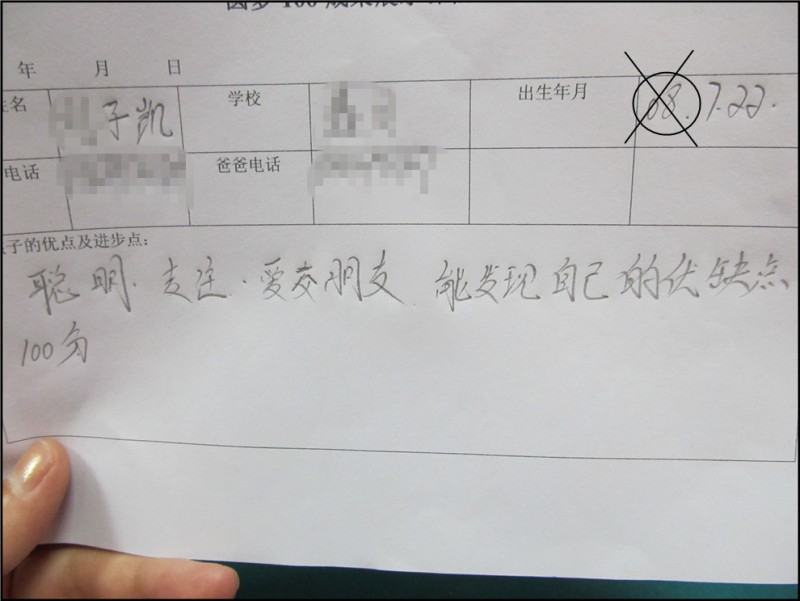 年 月 日
姓名 子凯 学校 出生年月 08.7.22.
电话 爸爸电话
子的优点及进步点:
聪明.专注.爱交朋友 能发现自己的优缺点
100分